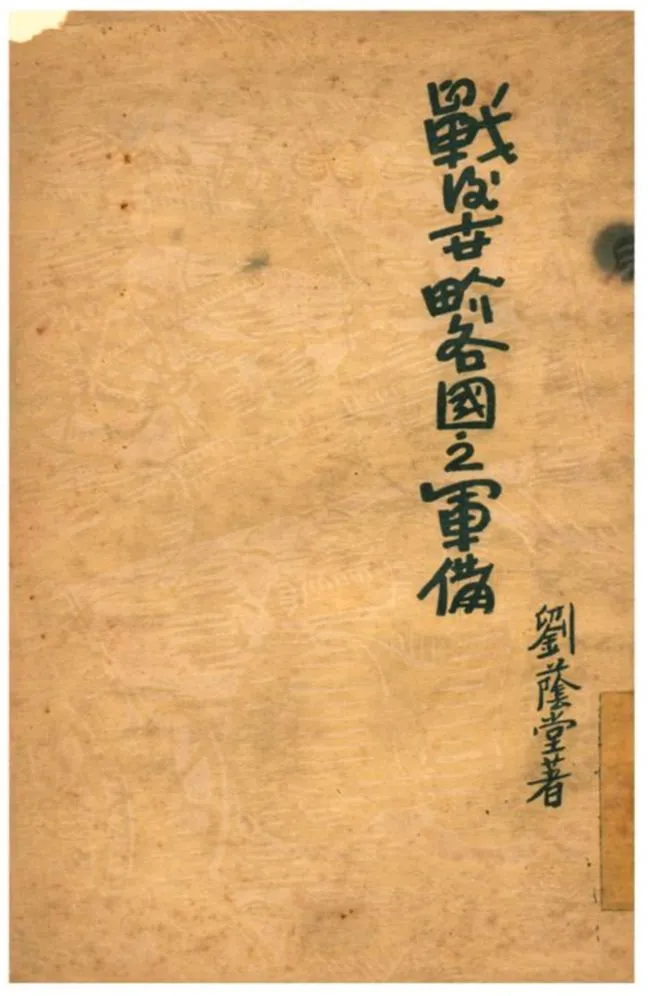 戰後世界各國之軍備
劉蔭堂著